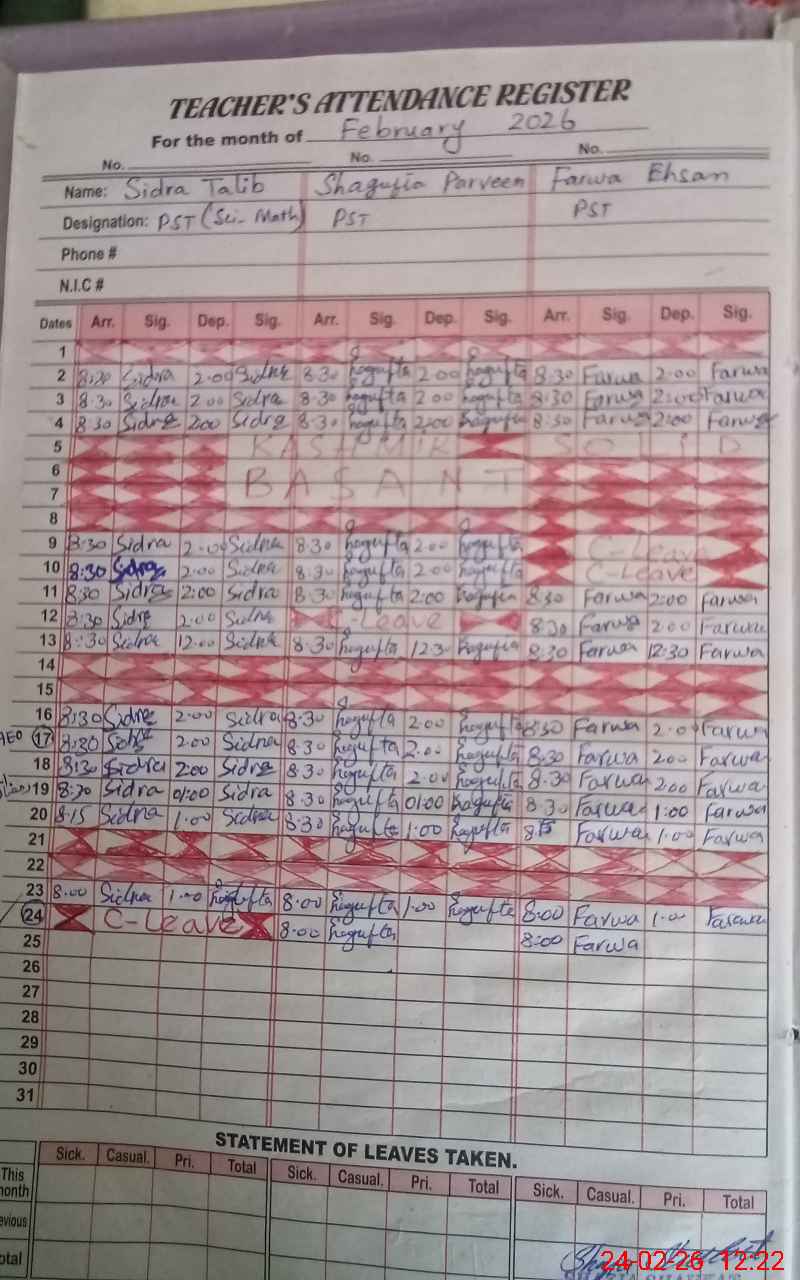 TEACHER'S ATTENDANCE REGISTER
For the month of February 2026
No. No. No.
Name: Sidra Talib Shagufta Parveen Farwa Ehsan
Designation: PST (Sci- Math) PST PST
Phone #
N.I.C #
Dates Arr. Sig. Dep. Sig. Arr. Sig. Dep. Sig. Arr. Sig. Dep. Sig.
1
2 8:30 Sidra 2.00 Sidra 8.30 Shagufta 2.00 Shagufta 8.30 Farwa 2.00 Farwa
3 8.30 Sidra 2.00 Sidra 8.30 Shagufta 2.00 Shagufta 8:30 Farwa 2:00 Farwa
4 8.30 Sidra 2:00 Sidra 8.30 Shagufta 2:00 Shagufta 8:30 Farwa 2:00 Farwa
5 KASHMIR SOLID
6
7 BASANT
8
9 8:30 Sidra 2.00 Sidra 8.30 Shagufta 2.00 Shagufta C-Leave
10 8:30 Sidra 2.00 Sidra 8.30 Shagufta 2.00 Shagufta C-Leave
11 8:30 Sidra 2:00 Sidra 8:30 Shagufta 2:00 Shagufta 8:30 Farwa 2:00 Farwa
12 8:30 Sidra 2.00 Sidra C-Leave 8:30 Farwa 2.00 Farwa
13 8:30 Sidra 12.00 Sidra 8.30 Shagufta 12.30 Shagufta 8:30 Farwa 12:30 Farwa
14
15
16 8:30 Sidra 2.00 Sidra 8.30 Shagufta 2.00 Shagufta 8:30 Farwa 2.00 Farwa
AEO 17 8:30 Sidra 2.00 Sidra 8.30 Shagufta 2.00 Shagufta 8:30 Farwa 2.00 Farwa
18 8:30 Sidra 2:00 Sidra 8.30 Shagufta 2.00 Shagufta 8.30 Farwa 2:00 Farwa
19 8:30 Sidra 01:00 Sidra 8.30 Shagufta 01:00 Shagufta 8:30 Farwa 1:00 Farwa
20 8.15 Sidra 1.00 Sidra 8:30 Shagufta 1.00 Shagufta 8:15 Farwa 1.00 Farwa
21
22
23 8.00 Sidra 1.00 Shagufta 8.00 Shagufta 1.00 Shagufta 8:00 Farwa 1.00 Farwa
24 C-Leave 8:00 Shagufta 8:00 Farwa
25
26
27
28
29
30
31
STATEMENT OF LEAVES TAKEN.
Sick. Casual. Pri. Total Sick. Casual. Pri. Total Sick. Casual. Pri. Total
This month
evious
otal
24-02-26 12:22